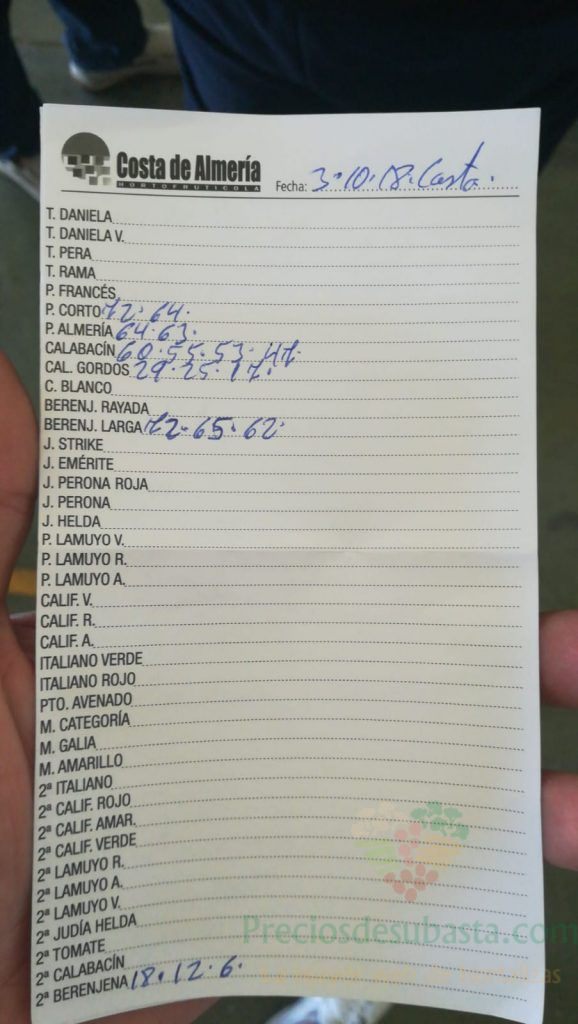 Costa de Almería
HORTOFRUTICOLA
Fecha: 3·10·18·Costa·
T. DANIELA
T. DANIELA V.
T. PERA
T. RAMA
P. FRANCÉS
P. CORTO 72·64·
P. ALMERÍA 64·63·
CALABACÍN 60·55·53·47·
CAL. GORDOS 29·25·17·
C. BLANCO
BERENJ. RAYADA
BERENJ. LARGA 72·65·62·
J. STRIKE
J. EMÉRITE
J. PERONA ROJA
J. PERONA
J. HELDA
P. LAMUYO V.
P. LAMUYO R.
P. LAMUYO A.
CALIF. V.
CALIF. R.
CALIF. A.
ITALIANO VERDE
ITALIANO ROJO
PTO. AVENADO
M. CATEGORÍA
M. GALIA
M. AMARILLO
2ª ITALIANO
2ª CALIF. ROJO
2ª CALIF. AMAR.
2ª CALIF. VERDE
2ª LAMUYO R.
2ª LAMUYO A.
2ª LAMUYO V.
2ª JUDÍA HELDA
2ª TOMATE
2ª CALABACÍN
2ª BERENJENA 18·12·6·
Preciosdesubasta.com